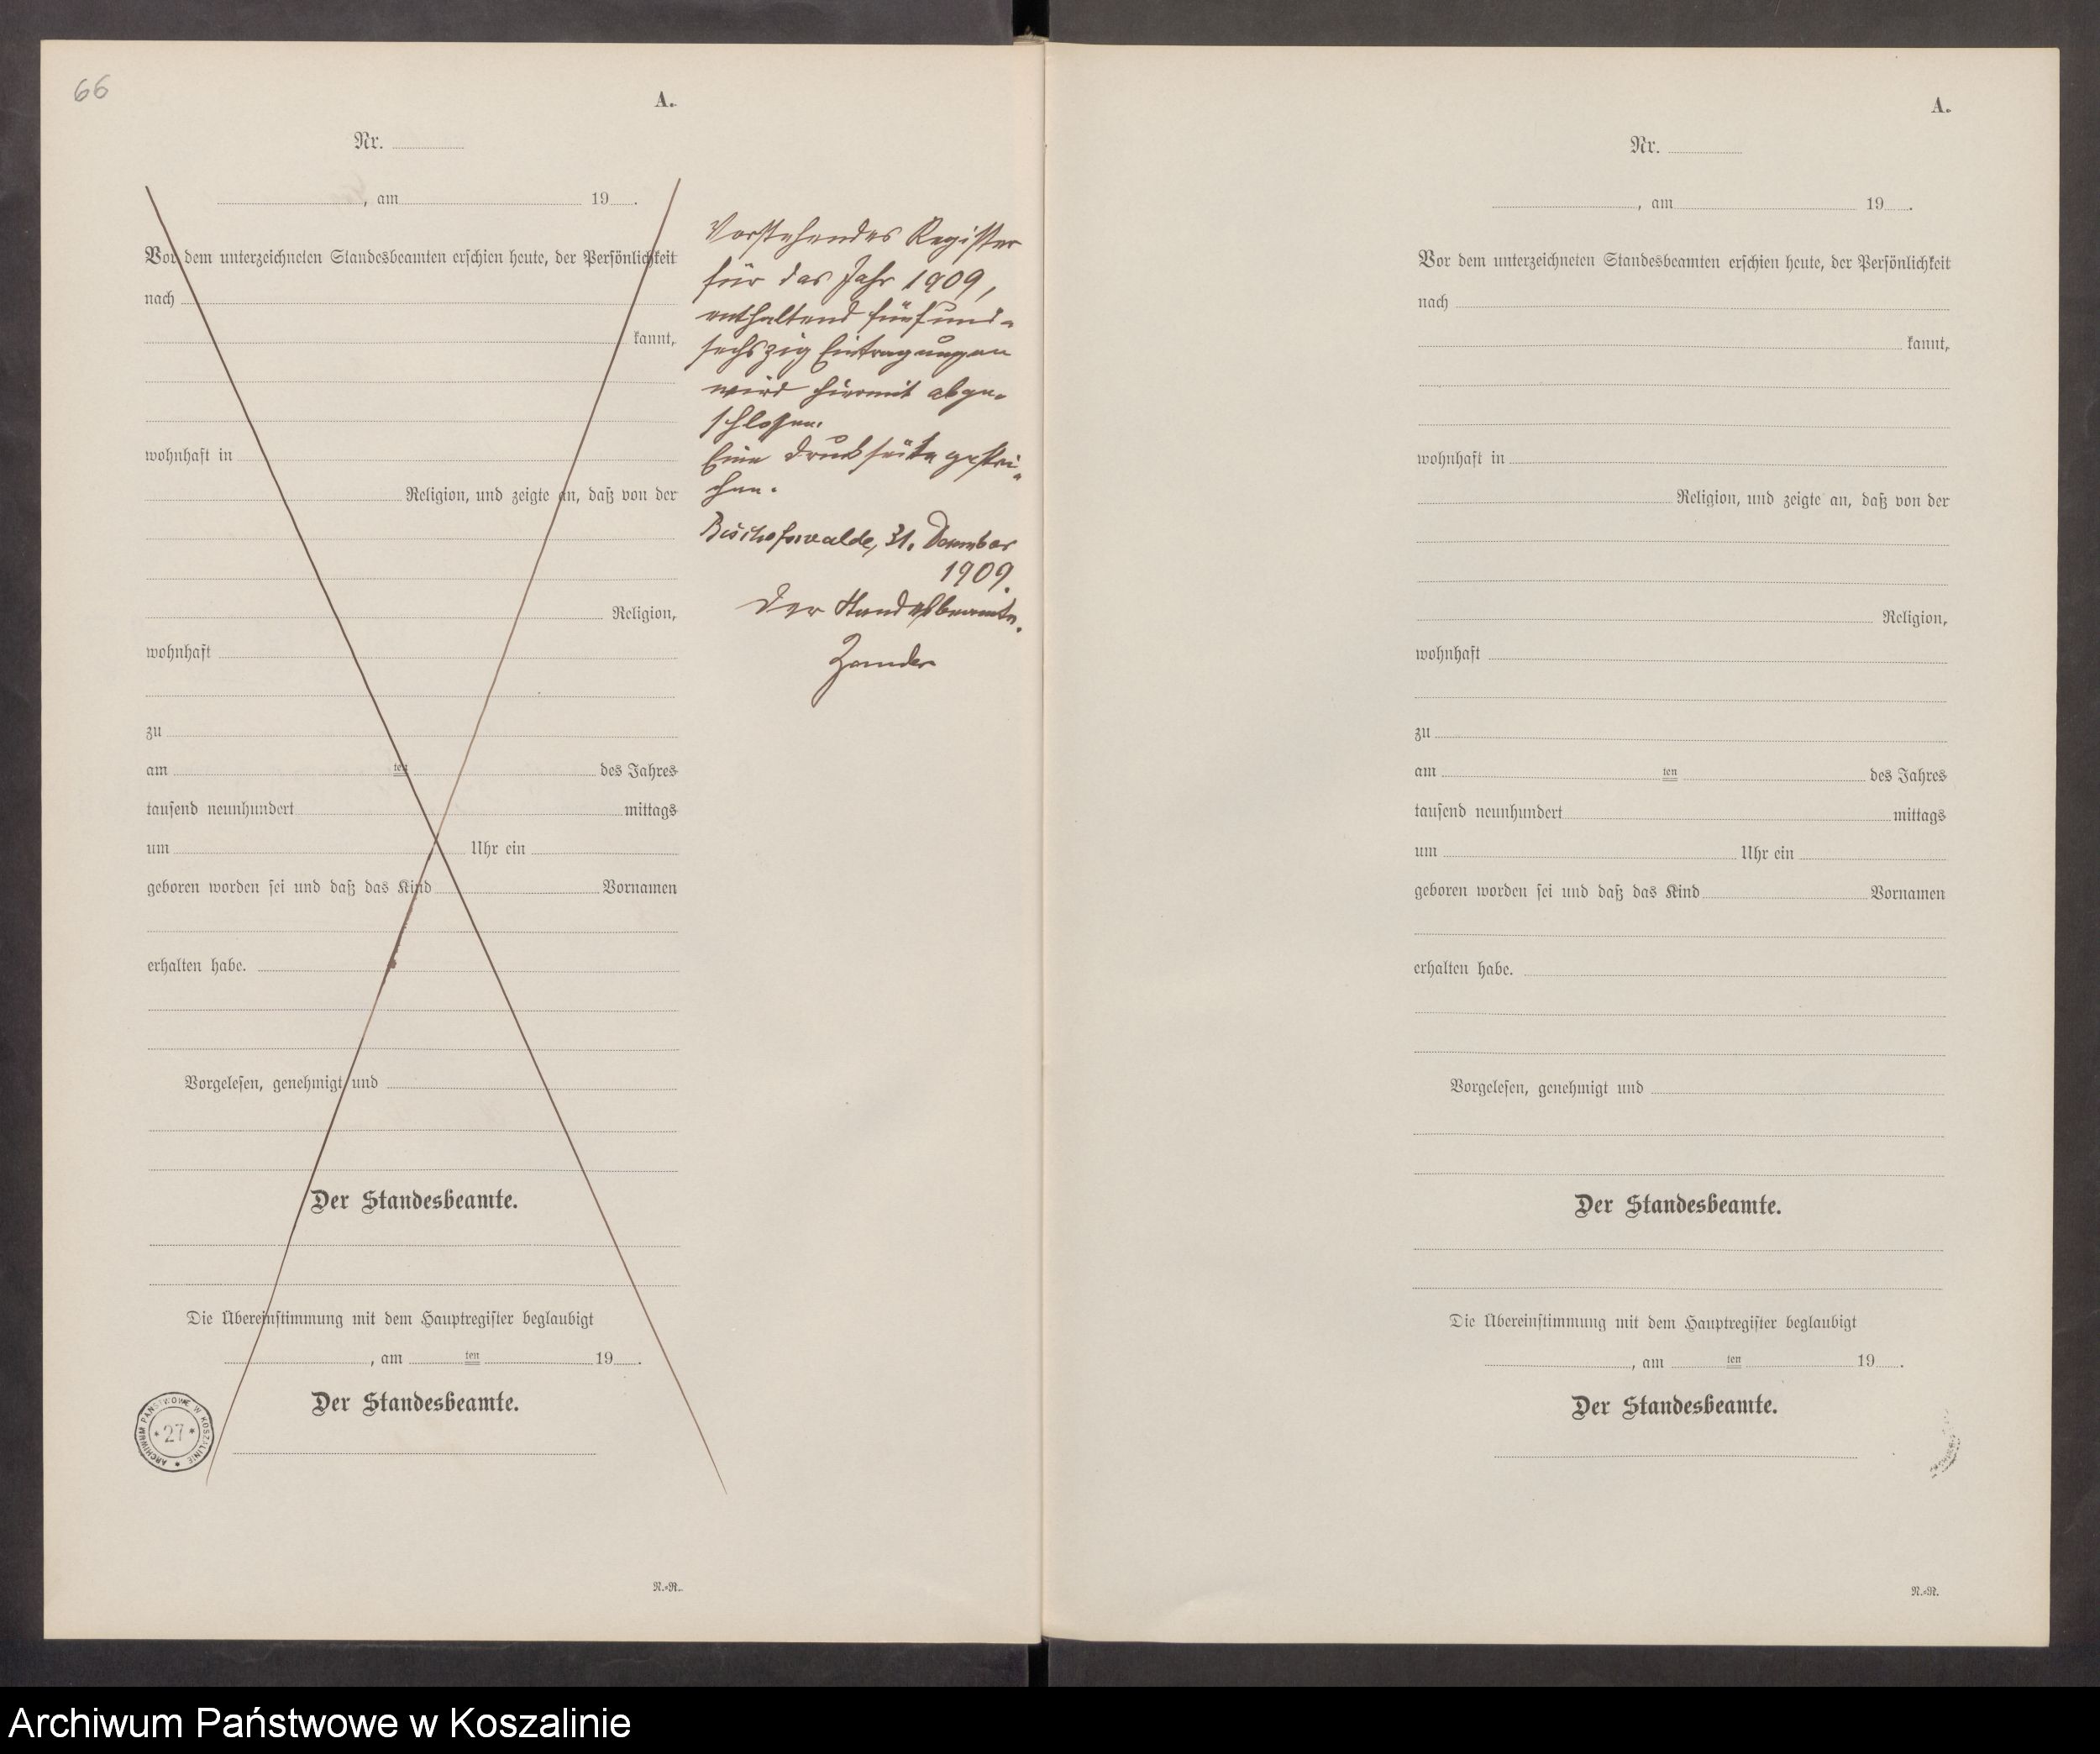 66
A.
Nr.
, am 19 .
Vor dem unterzeichneten Standesbeamten erschien heute, der Persönlichkeit
nach
kannt,
wohnhaft in
Religion, und zeigte an, daß von der
Religion,
wohnhaft
zu
am ten des Jahres
tausend neunhundert mittags
um Uhr ein
geboren worden sei und daß das Kind Vornamen
erhalten habe.
Vorgelesen, genehmigt und
Der Standesbeamte.
Die Übereinstimmung mit dem Hauptregister beglaubigt
, am ten 19 .
Der Standesbeamte.
ARCHIWUM PAŃSTWOWE W KOSZALINIE
* 27 *
N.-R.
Vorstehendes Register
für das Jahr 1909,
enthaltend fünfund-
sechszig Eintragungen
wird hiermit abge-
schlossen.
Eine Druckseite gestri-
chen.
Bischofswalde, 31. Dezember
1909.
Der Standesbeamte.
Zander
A.
Nr.
, am 19 .
Vor dem unterzeichneten Standesbeamten erschien heute, der Persönlichkeit
nach
kannt,
wohnhaft in
Religion, und zeigte an, daß von der
Religion,
wohnhaft
zu
am ten des Jahres
tausend neunhundert mittags
um Uhr ein
geboren worden sei und daß das Kind Vornamen
erhalten habe.
Vorgelesen, genehmigt und
Der Standesbeamte.
Die Übereinstimmung mit dem Hauptregister beglaubigt
, am ten 19 .
Der Standesbeamte.
N.-R.
Archiwum Państwowe w Koszalinie